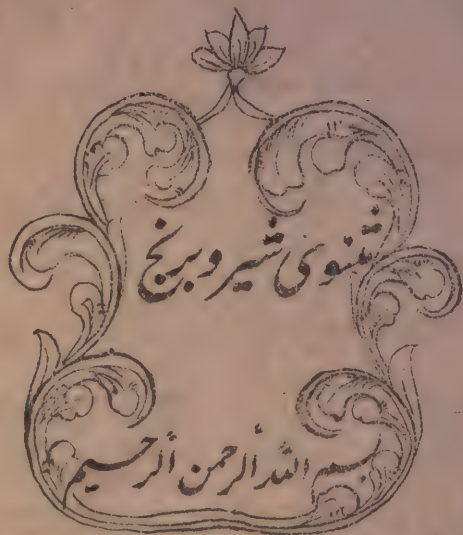 مثنوی شیر و برنج
بسم اللہ الرحمن الرحیم